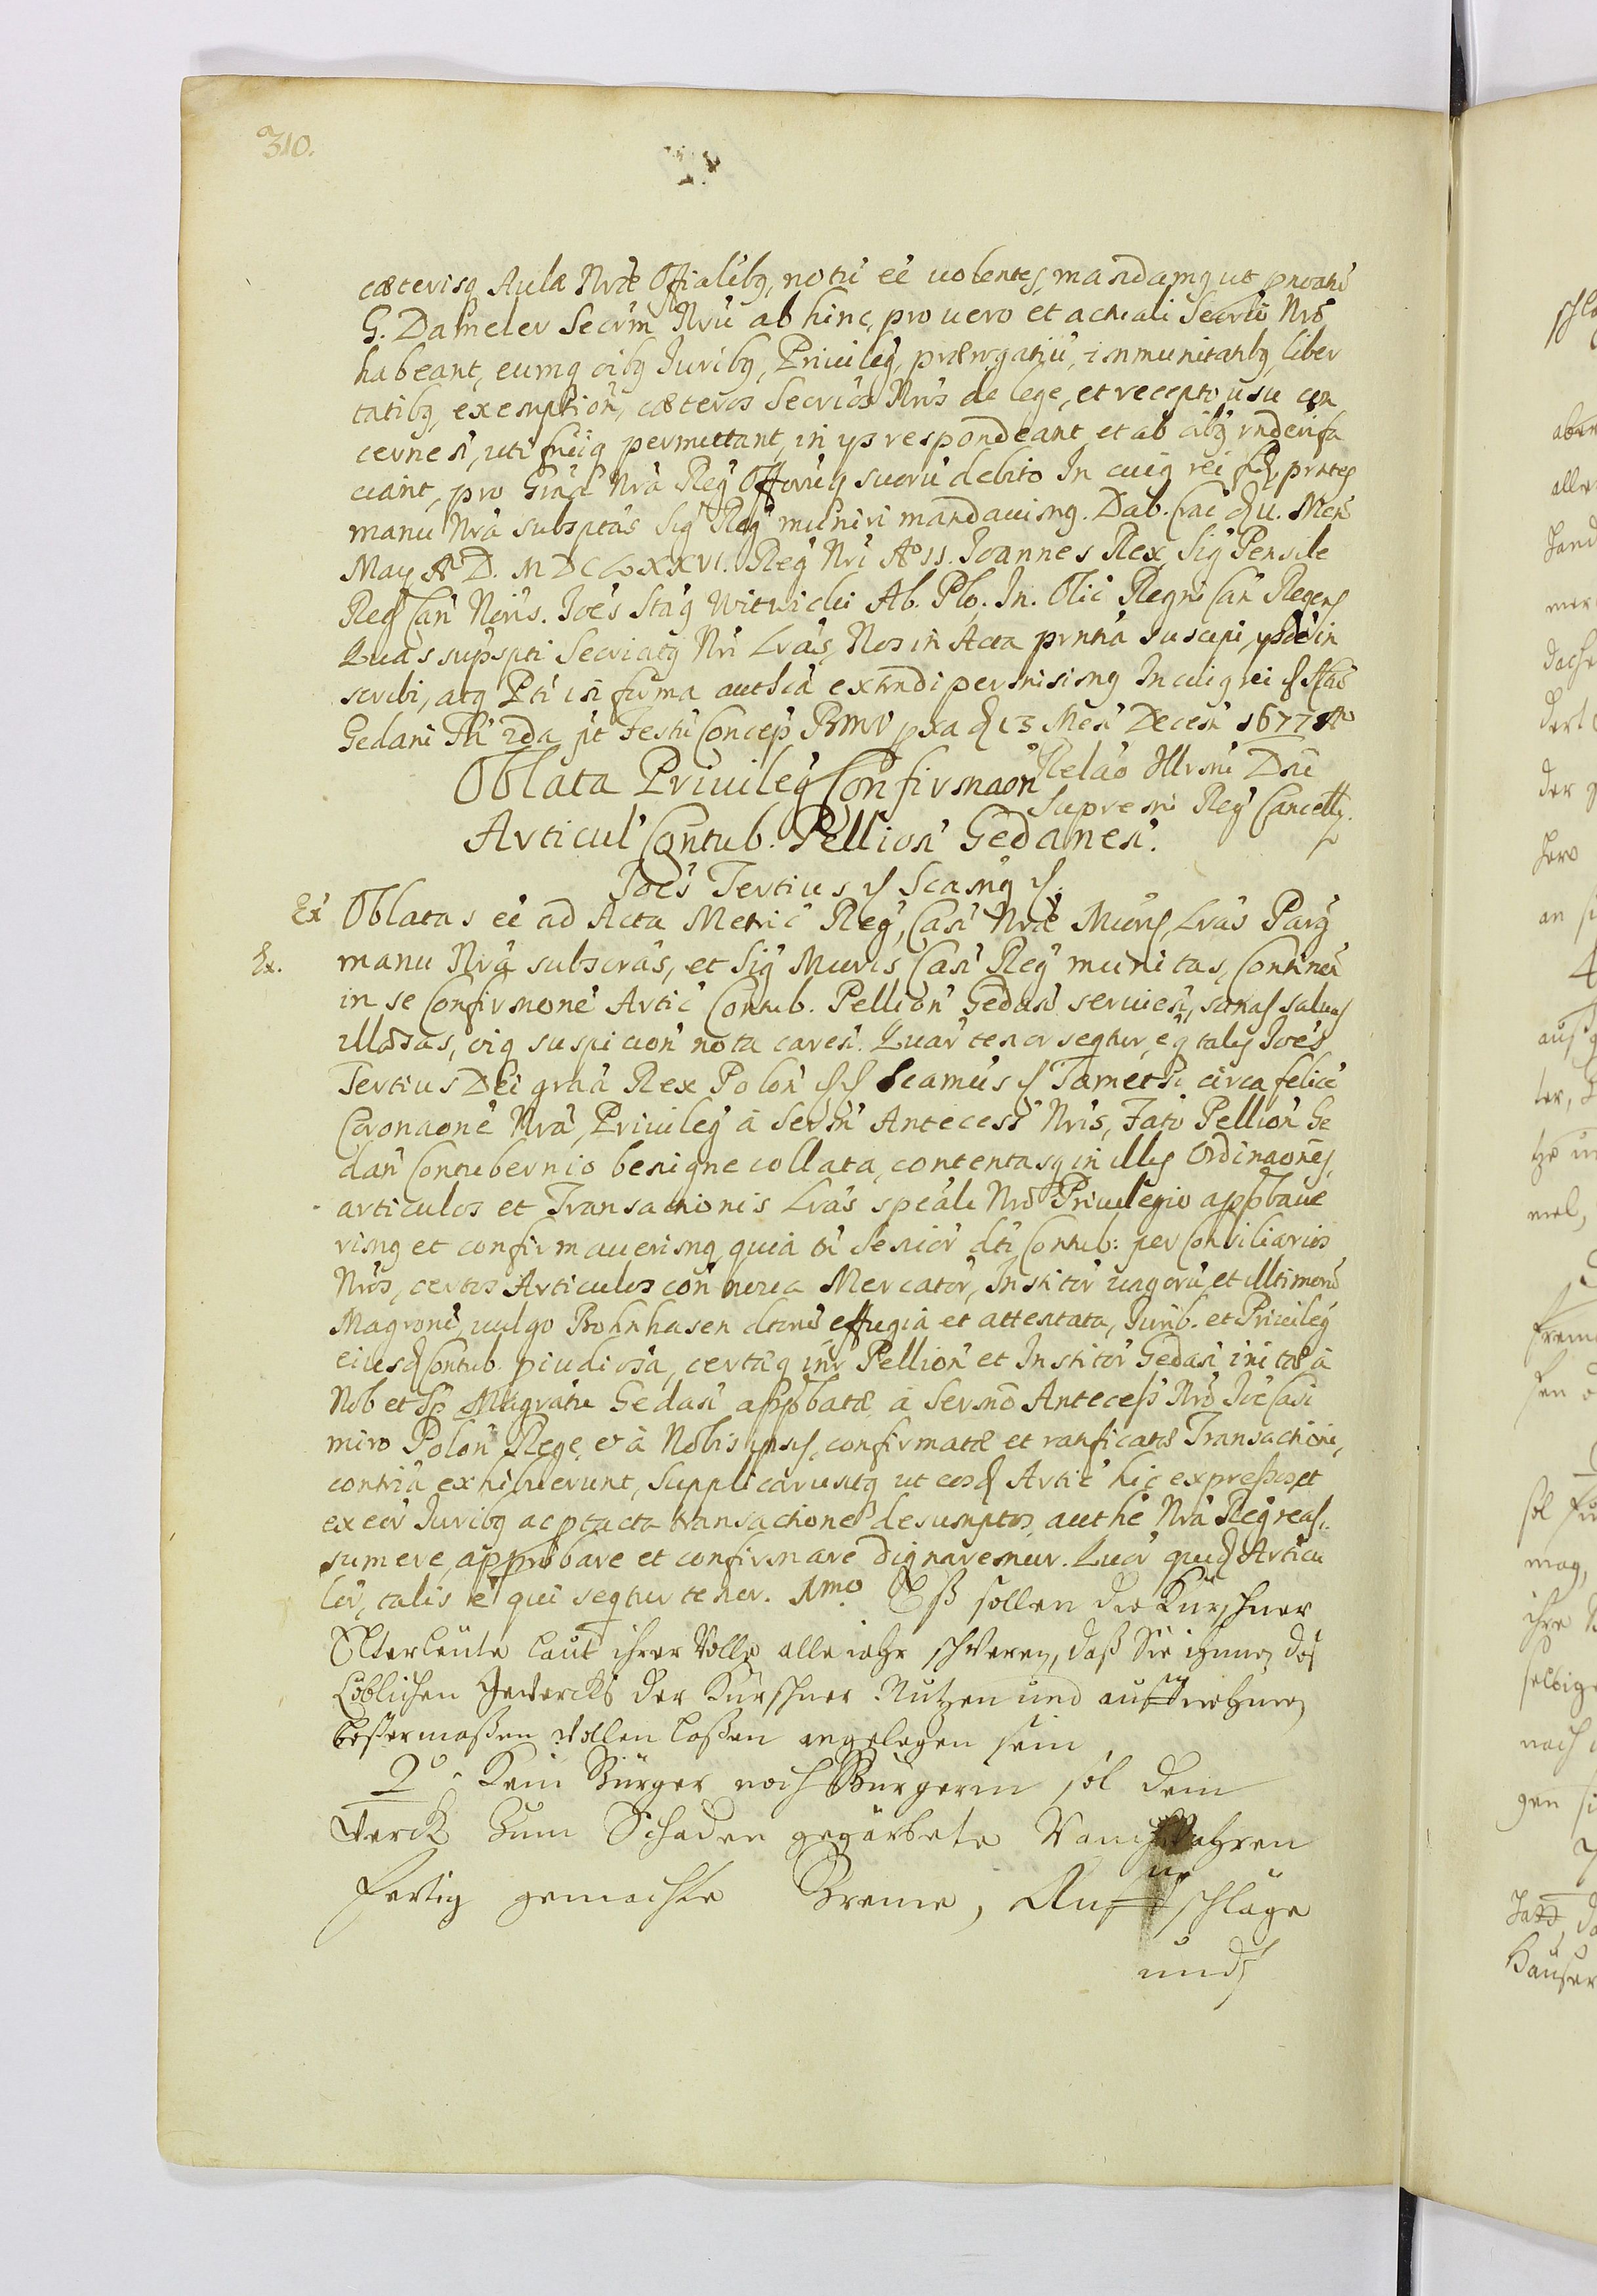 310.
cæterisq Aulæ Nræ Offialibq, notū eē uolentes, mandamq ut prnatū
G. Dameler Secrm Nrū ab hinc, pro uero et actuali Secrio Nro
habeant, eumq oibq Juribq, Priuileg, prærogatiu, immunitatibq, liber
tatibq, exemption, cæteros Secrios Nros de lege, et recepto usu con
cernen, uti fruiq permittant, in ys respondeant et ab aliis rnderi fa
ciant, pro Gratia Nra Reg Offorūq suorū debito In cuiq rei fid, prntes
manu Nra subsptas Sig Reg muniri mandauimq. Dab. Crac d u. Mens
May Ao D. MDCLXXVI. Reg Nri Ao 11. Joannes Rex, Sig Pensile
Reg Can Noris. Joes Stag Witwicki Ab. Plo. In. Olic Regni Can Regens
Quas supspti Secriatq Nri Lras, Nos in Acta prntia suscipi, ysdē in
scribi, atq Pti in forma authca extradi permisimq In cuiq rei
Gedani Fa 2da pt Festū Concep BMV pxa d 13 Men Decem 1677 Ao
Relao Illrmi Dni
Supremi Reg Cancelly.
Oblata Priuileg Confirmaon
Articul Contub. Pellion Gedanen.
Joes Tertius Scamq
Ex Oblatas eē ad Acta Metric Reg, Can Nræ Muris Lras Parg
Ex. manu Nra subscras, et Sig Muris Can Reg munitas, Continen
in se Confirmonē Artic Contub. Pellion Gedan seruien, sanas saluas
illæsas, oiq suspicion nota caren. Quar tenor seqtur, eq talis Joes
Tertius Dei grha Rex Polon Scamus Tametsi circa felicē
Coronaonē Nra, Priuileg à Serm Antecess Nris, Fato Pellion Ge
dan Contubernio benigne collata, contentasq in illis Ordinaones,
articulos et Transactionis Lras speali Nro Priuilegio appbaue
rimq et confirmauerimq, quia tn Senior dti Contub: per Consiliarios
Nros, certos Articulos con noua Mercator, Institor uagorū, et illtimorū
Magronū, uulgo Bohnhasen dtorū effugia et attentata, Jurib. et Priuileg
eiusd Contub. piudiosa, certæq intr Pellion et Institor Gedan initæ à
Nob et Sp Magratu Gedan appbatæ, à Sermo Antecess Nro Joe Casi
miro Polon Rege, et à Nobis ipsis, confirmatæ et ratificatæ Transactioni,
contria exhibuerunt, Supplicaruntq ut eosd Artic hic expressos et
ex eor Juribq ac ptacta transactione desumptos, authe Nra Reg reas:
sumere, approbare et confirmare dignaremur. Quor quid Articu
lor, talis e qui seqtur tenor. 1mo. Eß sollen die Kürschner
Elterleute laut ihrer Rolle alle iahr schweren, daß Sie ihnen des
Löblichen Gewercks der Kürschner Nutzen und auffnehmen
bestermaßen wollen laßen angelegen sein,
2o. Kein Bürger noch Bürgerin sol dem
Werck zum Schaden gegärbete Rauchwahren
fertig gemachte Breme, Auffschläge
und